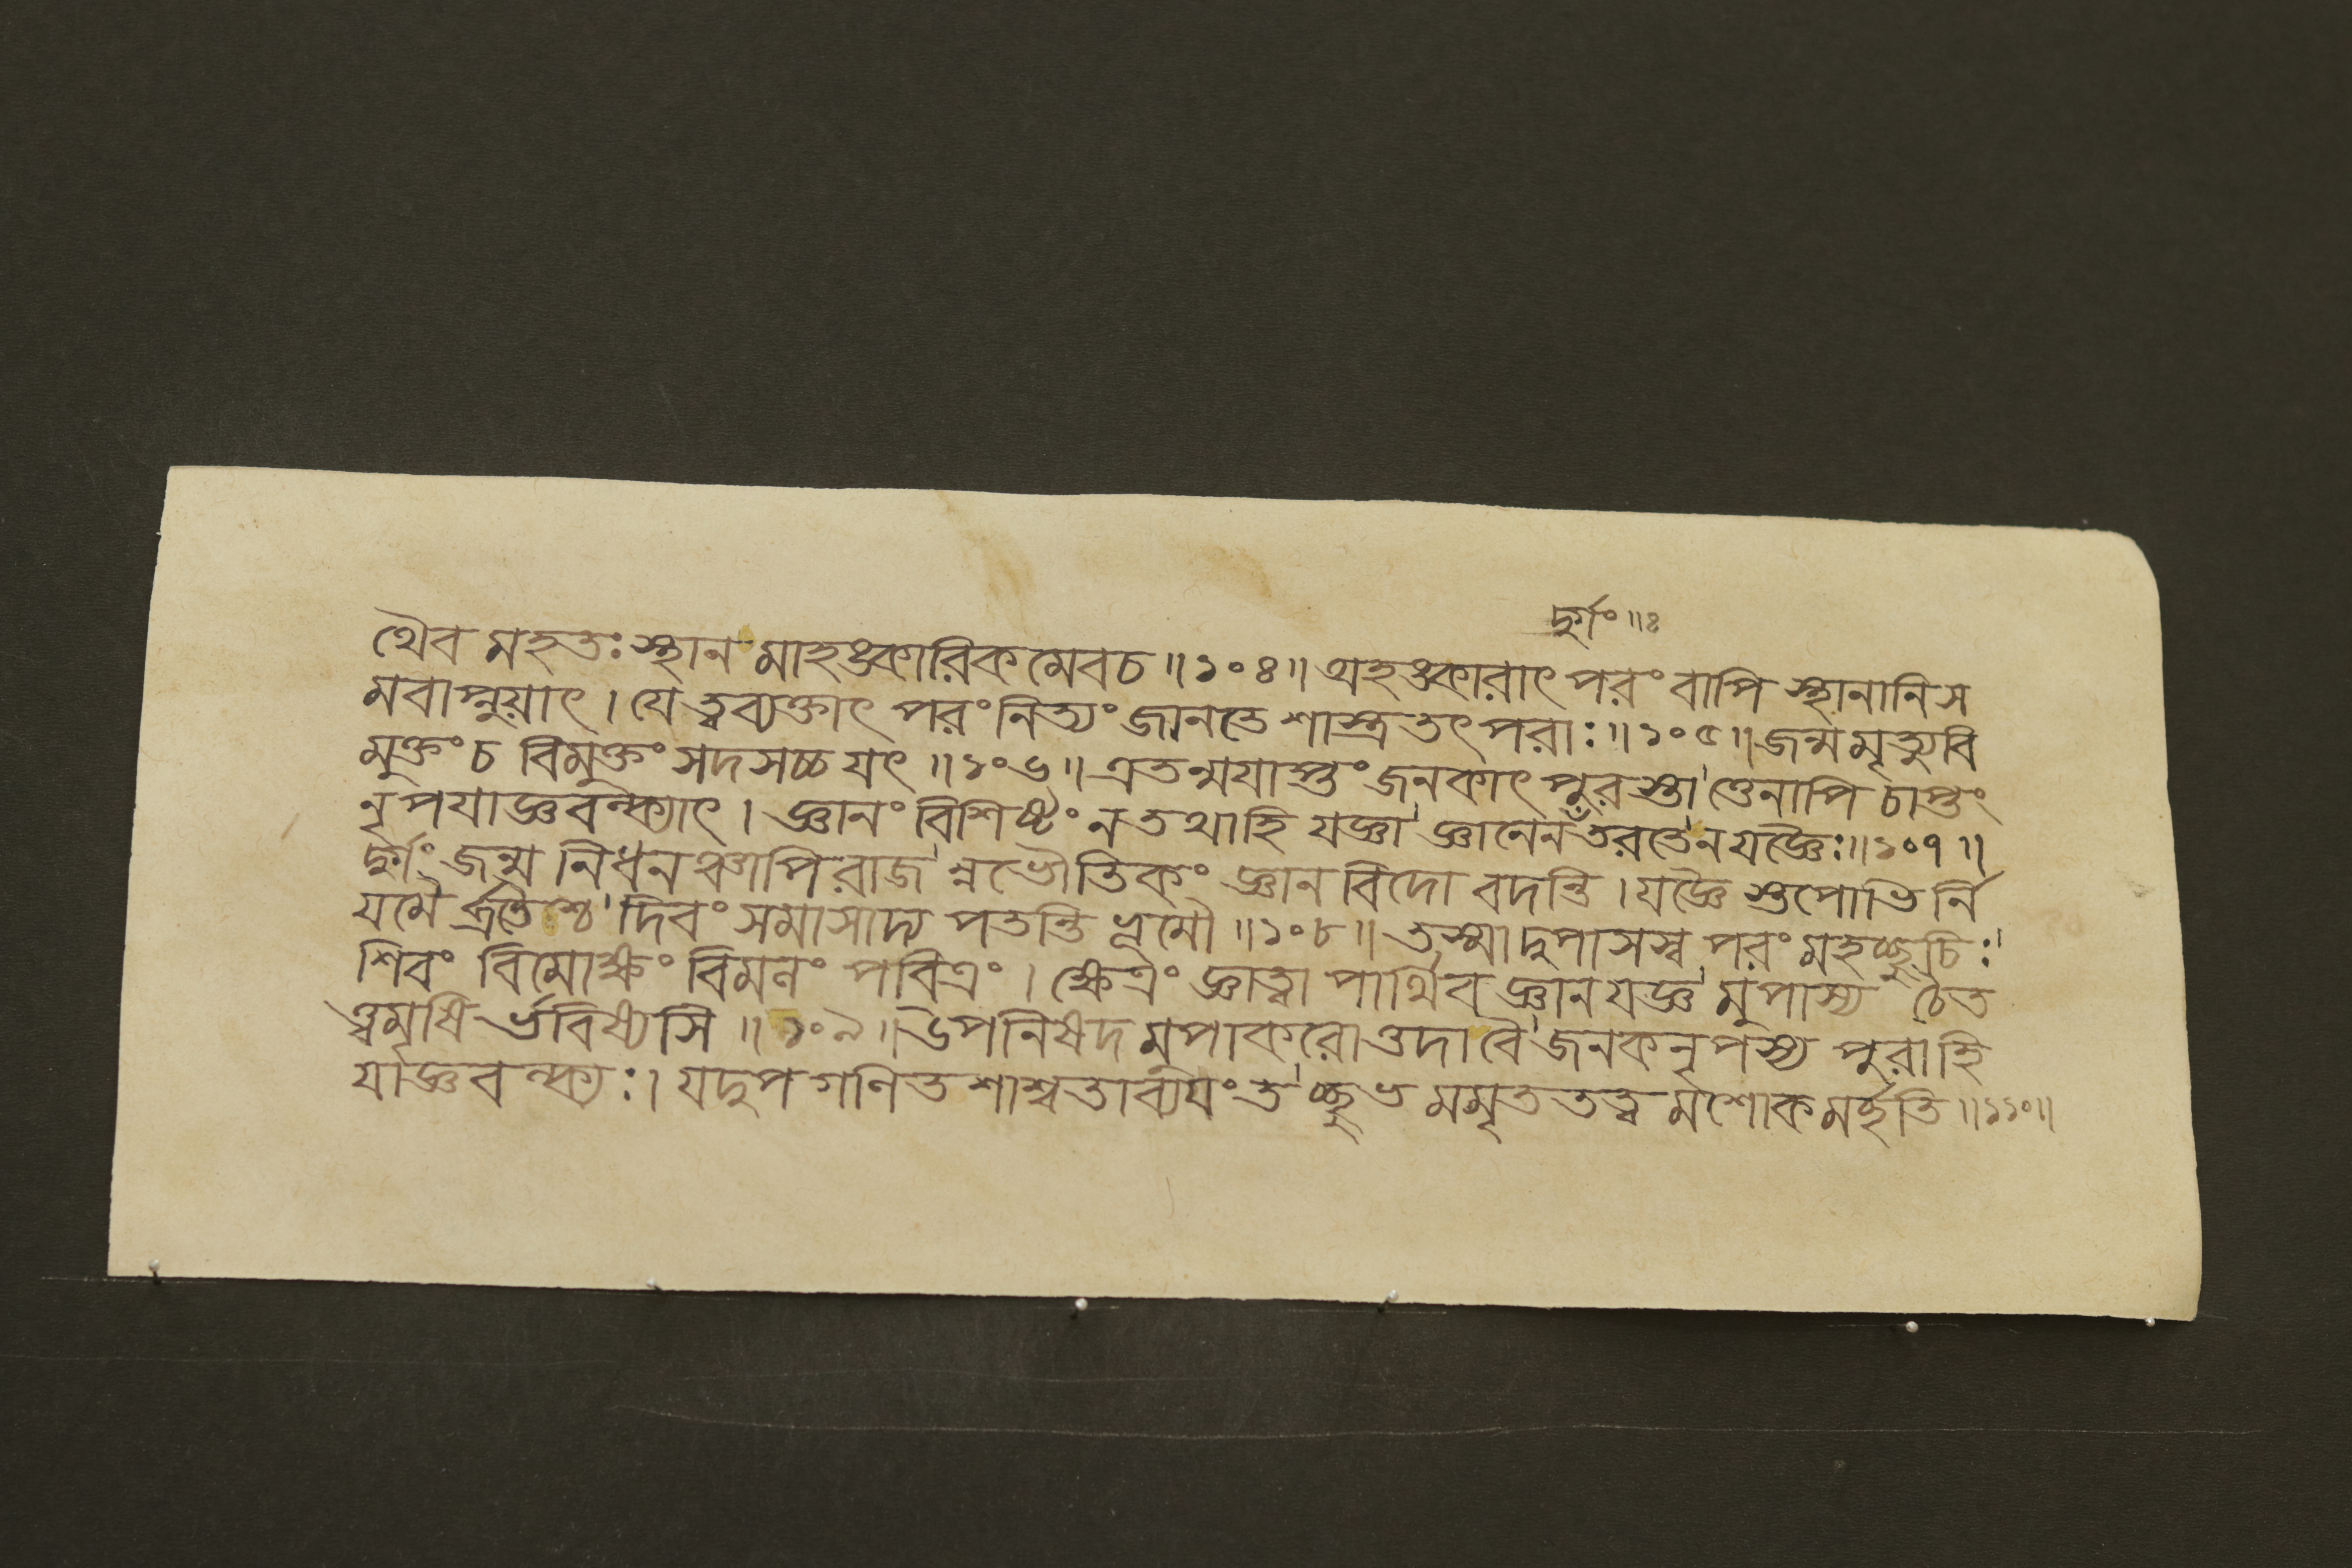 দুর্গং ॥ ৪
থৈব মহতঃ স্থান মাহঙ্কারিক মেবচ ॥ ১০৪ ॥ অহঙ্কারাৎ পরং বাপি স্থানানি স
মবাপ্নুয়াৎ । যে ত্বব্যক্তাৎ পরং নিত্যং জানতে শাস্ত্রতৎপরাঃ ॥ ১০৫ ॥ জন্মমৃত্যুবি
মুক্তং চ বিমুক্তং সদসচ্চ যৎ ॥ ১০৬ ॥ এতন্ময়াপ্তং জনকাৎ পুরস্তা' ত্তেনাপি চাপ্তং
নৃপ যাজ্ঞবল্ক্যাৎ । জ্ঞানং বিশিষ্টং ন তথাহি যজ্ঞা' জ্ঞানেন তরতে ন যজ্ঞৈঃ ॥ ১০৭ ॥
দুর্গং জন্ম নিধনঞ্চাপি রাজ' ন্নভৌতিকং জ্ঞানবিদো বদন্তি । যজ্ঞৈ স্তপোভি র্নি
যমৈ র্ব্রতৈশ্চ' দিবং সমাসাদ্য পতন্তি ভূমৌ ॥ ১০৮ ॥ তস্মা দুপাসস্ব পরং মহচ্ছুচিঃ'
শিবং বিমোক্ষং বিমলং পবিত্রং । ক্ষেত্রং জ্ঞাত্বা পার্থিব জ্ঞানযজ্ঞ' মুপাস্য বৈত
ত্ত্বমৃষি র্ভবিষ্যসি ॥ ১০৯ ॥ উপনিষদ মুপাকরো ত্তদা বৈ' জনকনৃপস্য পুরা হি
যাজ্ঞবল্ক্যঃ । যদুপগণিত শাশ্বতাব্যয়ং ত' চ্ছুভ মমৃতত্ব মশোক মর্হতি ॥ ১১০ ॥